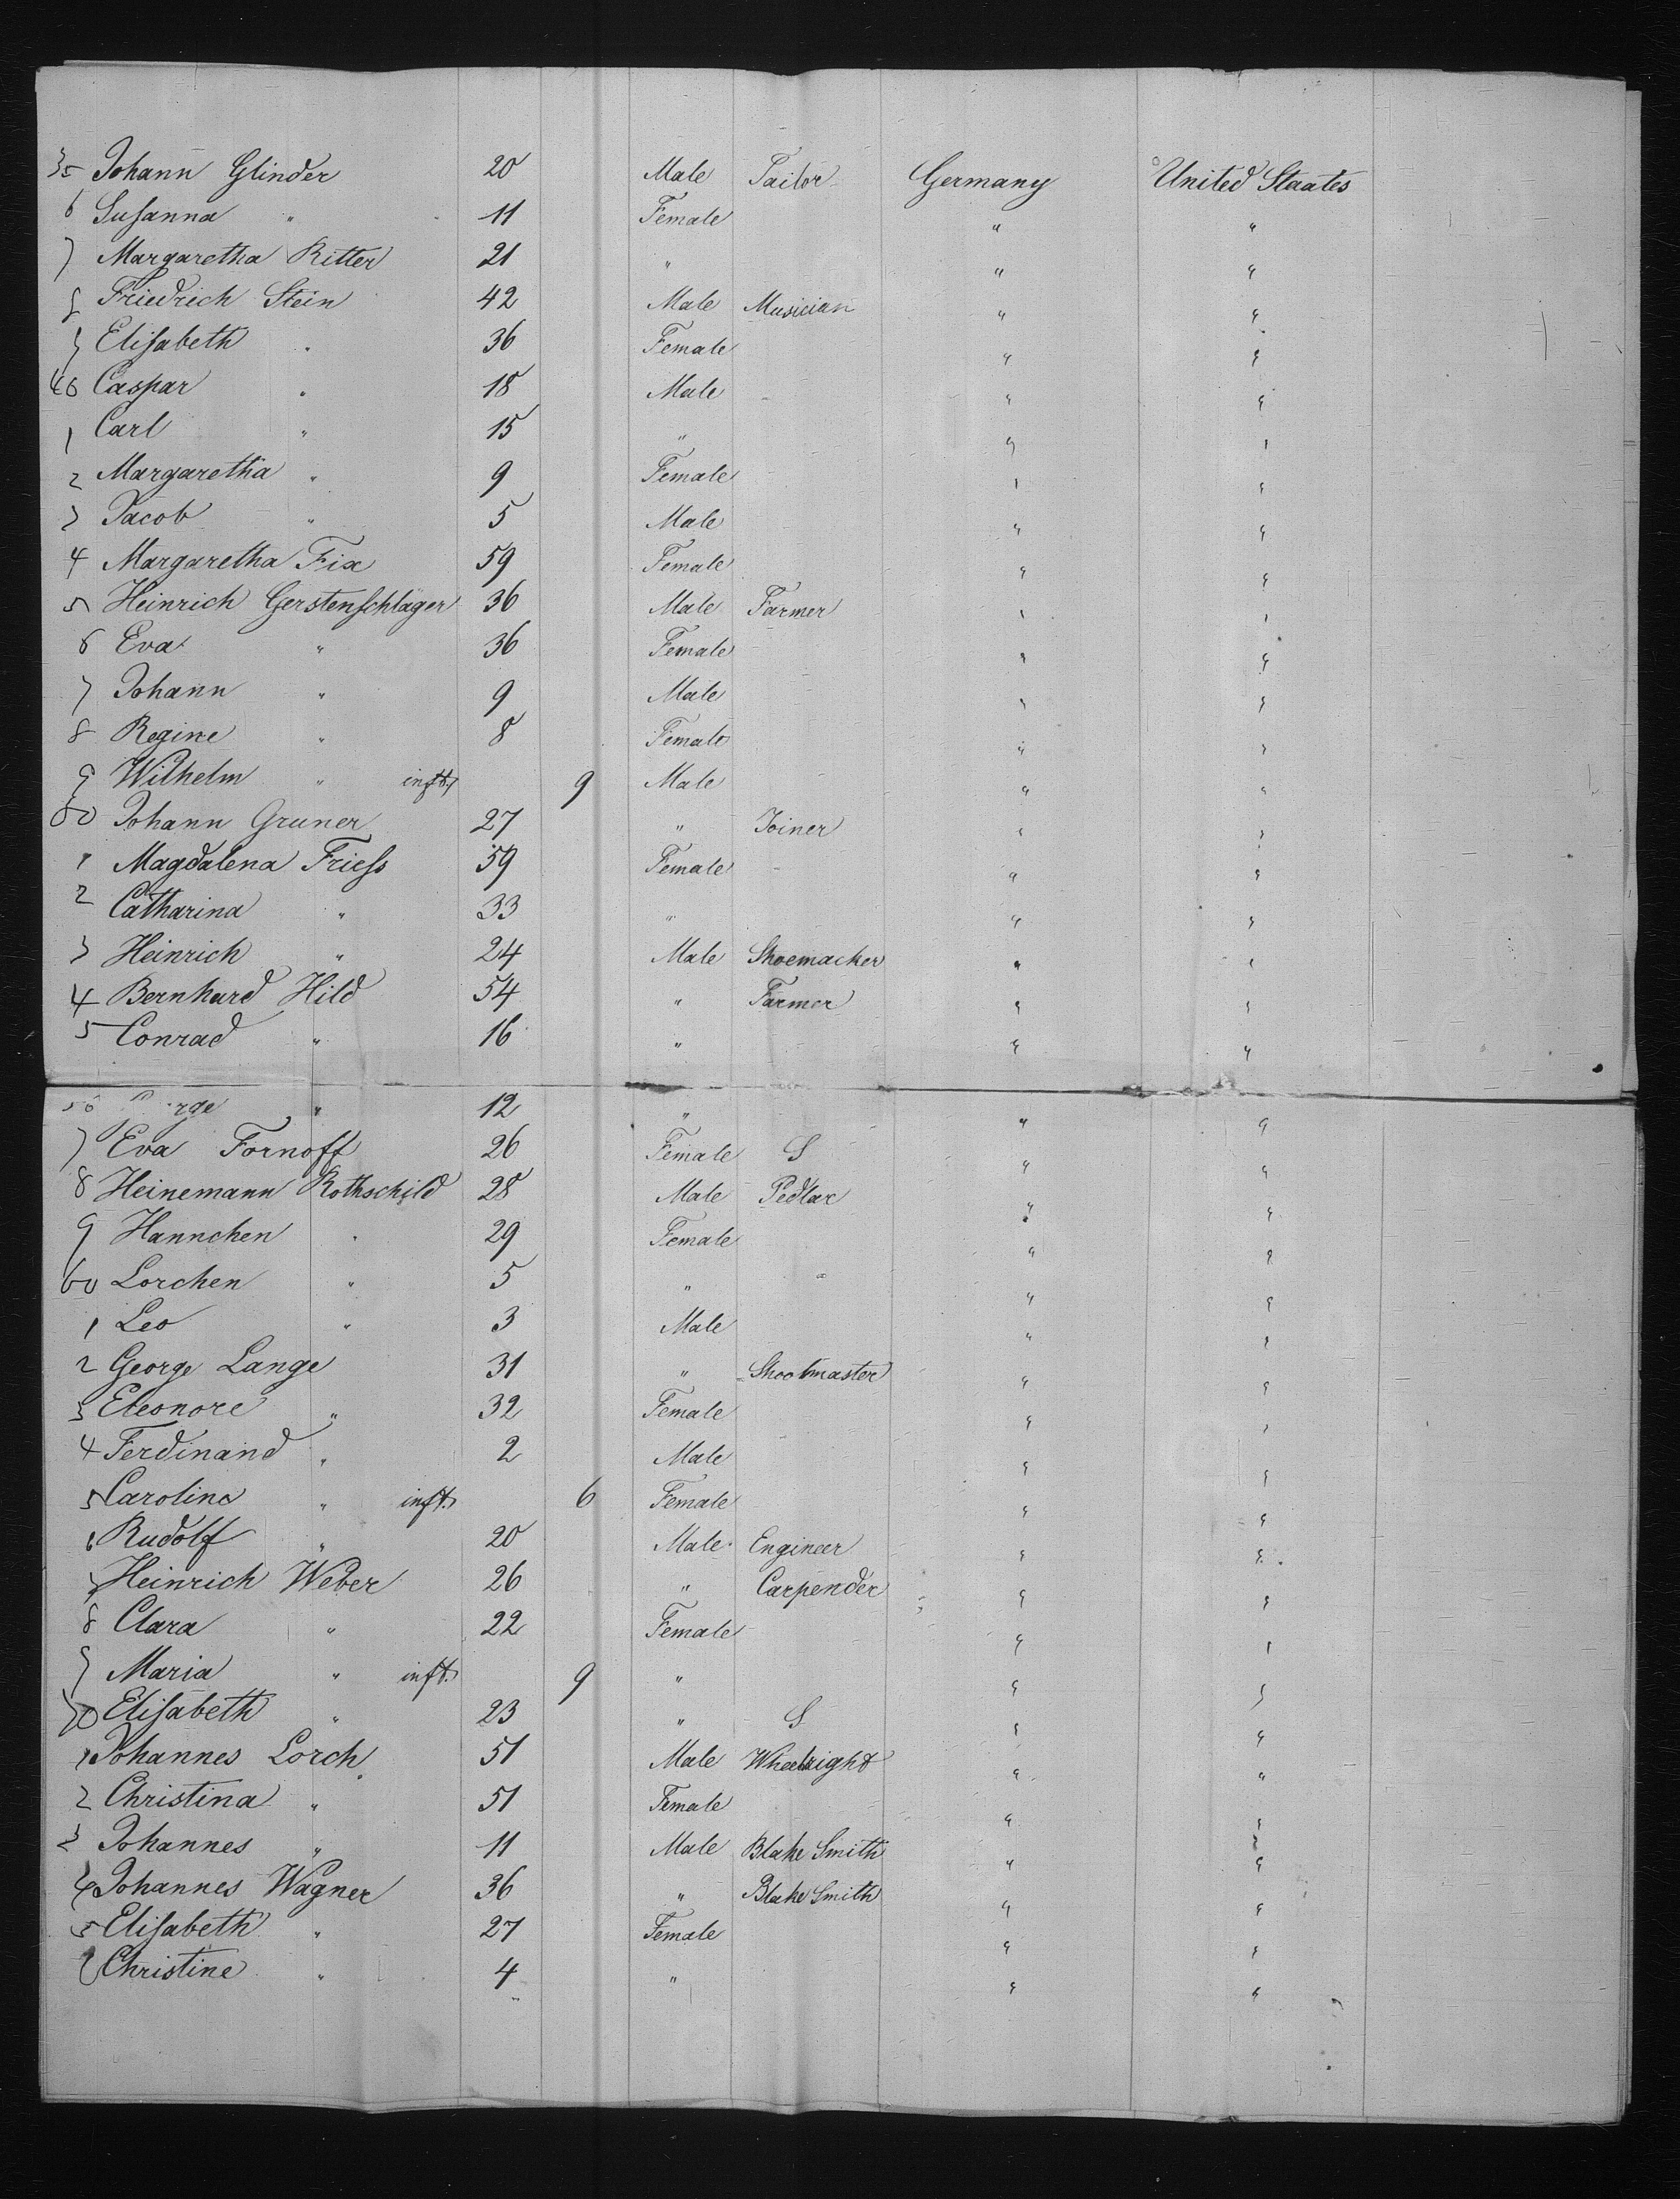 35 Johann Glinder 20 Male Tailor Germany United Staates
6 Susanna " 11 Female " "
7 Margaretha Ritter 21 " " "
8 Friedrich Stein 42 Male Musician " "
9 Elisabeth " 36 Female " "
40 Caspar " 18 Male " "
1 Carl " 15 " " "
2 Margaretha " 9 Female " "
3 Jacob " 5 Male " "
4 Margaretha Fix 59 Female " "
5 Heinrich Gerstenschläger 36 Male Farmer " "
6 Eva " 36 Female " "
7 Johann " 9 Male " "
8 Regine " 8 Female " "
9 Wilhelm " inft. 9 Male " "
50 Johann Gruner 27 " Joiner " "
1 Magdalena Friess 59 Female " "
2 Catharina " 33 " " "
3 Heinrich " 24 Male Shoemacker " "
4 Bernhard Hild 54 " Farmer " "
5 Conrad " 16 " " "
56 " 12 " " "
7 Eva Fornoff 26 Female S " "
8 Heinemann Rothschild 28 Male Pedlar " "
9 Hannchen " 29 Female " "
60 Lorchen " 5 " " "
1 Leo " 3 Male " "
2 George Lange 31 " Shoolmaster " "
3 Eleonore " 32 Female " "
4 Ferdinand " 2 Male " "
5 Caroline " inft. 6 Female " "
6 Rudolf " 20 Male Engineer " "
7 Heinrich Weber 26 " Carpender " "
8 Clara " 22 Female " "
9 Maria " inft. 9 " " "
70 Elisabeth " 23 " S " "
1 Johannes Lorch 51 Male Wheelright " "
2 Christina " 51 Female " "
3 Johannes " 11 Male Blake Smith " "
4 Johannes Wagner 36 " Blake Smith " "
5 Elisabeth " 27 Female " "
6 Christine " 4 " " "